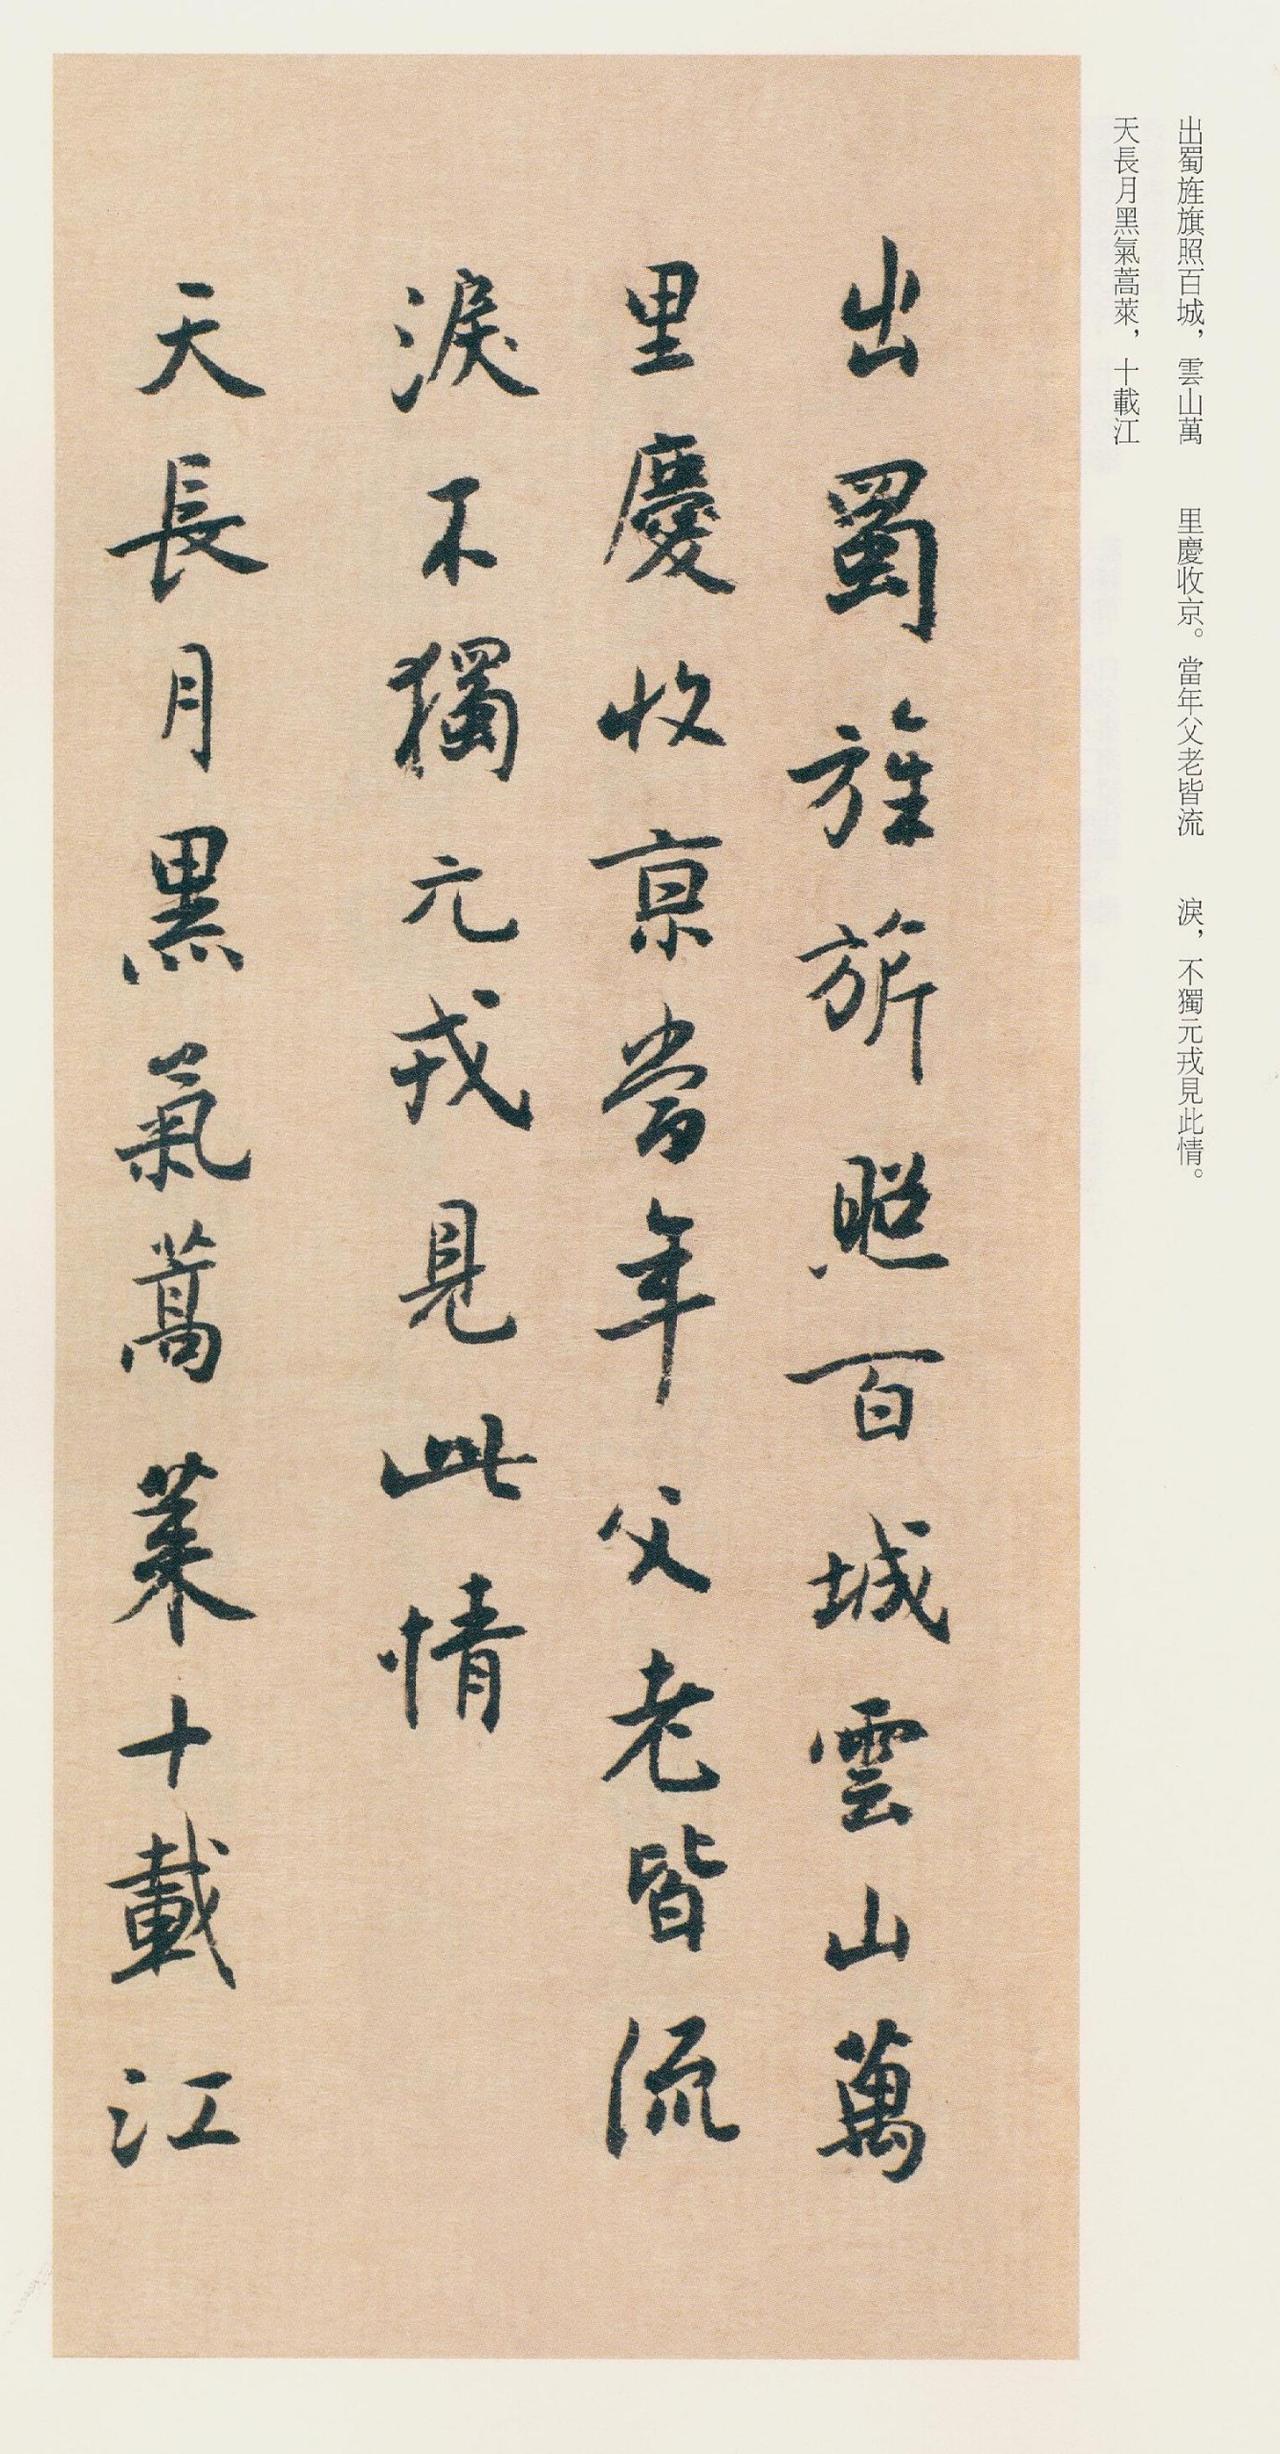 出蜀旌旗照百城，雲山萬　里慶收京。當年父老皆流　淚，不獨元戎見此情。
天長月黑氣蒿萊，十載江
出蜀旌旂照百城雲山萬
里慶收京當年父老皆流
淚不獨元戎見此情
天長月黑氣蒿萊十載江